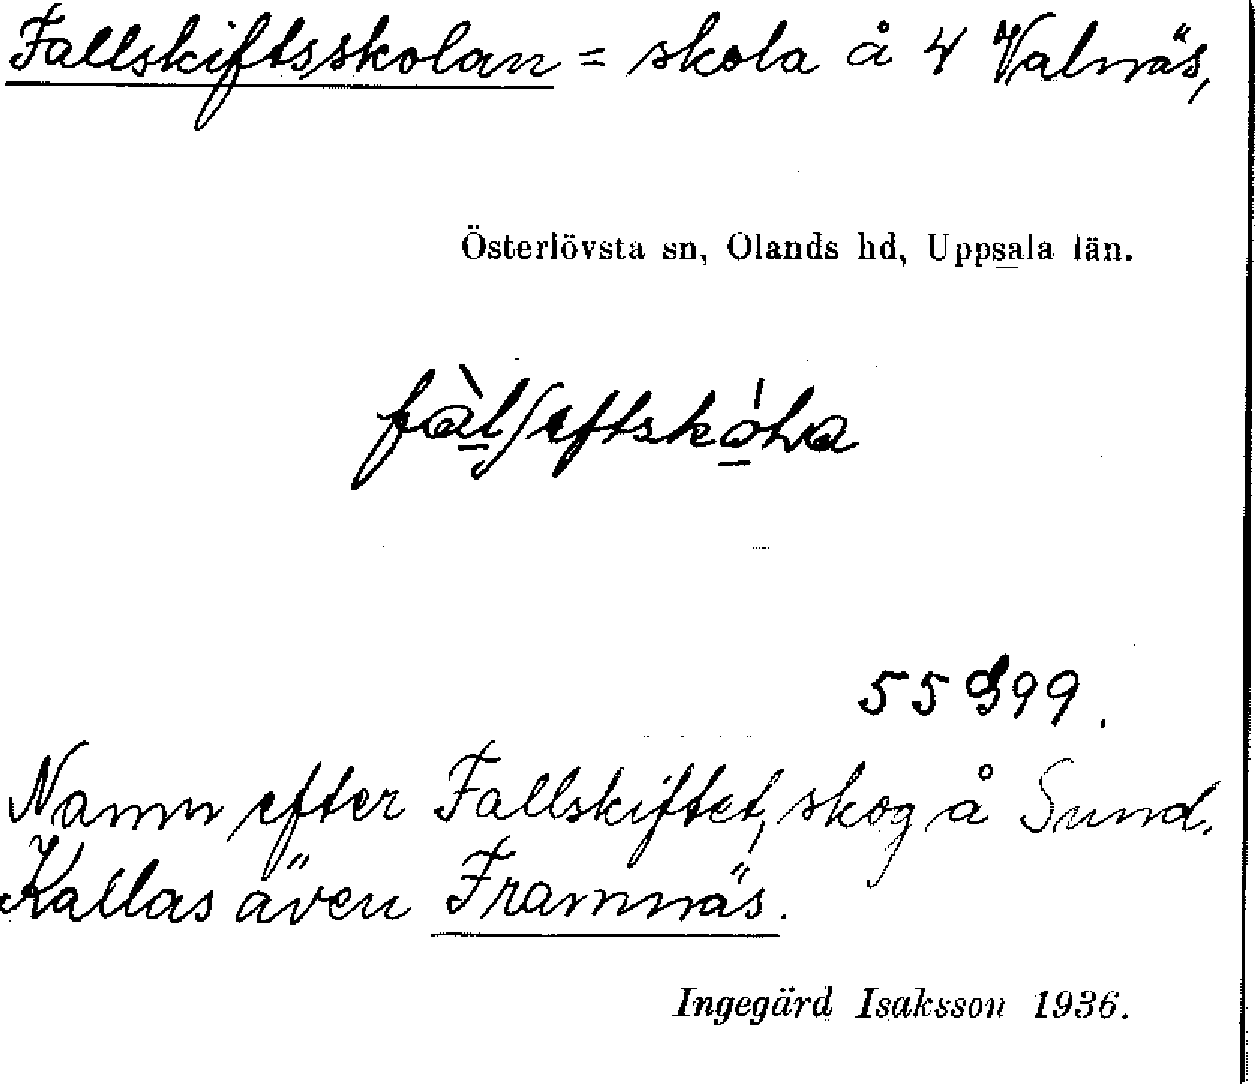 Fallskiftsskolan = skola å 4 Valnäs,
Österlövsta sn, Olands hd, Uppsala län.
Namn efter Fallskiftet, skog å Sund.
Kallas även Framnäs.
Ingegärd Isaksson 1936.